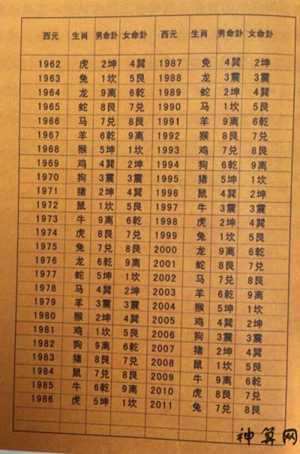 西元 生肖 男命卦 女命卦 西元 生肖 男命卦 女命卦
1962 虎 2坤 4巽 1987 兔 4巽 2坤
1963 兔 1坎 5艮 1988 龙 3震 3震
1964 龙 9离 6乾 1989 蛇 2坤 4巽
1965 蛇 8艮 7兑 1990 马 1坎 5艮
1966 马 7兑 8艮 1991 羊 9离 6乾
1967 羊 6乾 9离 1992 猴 8艮 7兑
1968 猴 5坤 1坎 1993 鸡 7兑 8艮
1969 鸡 4巽 2坤 1994 狗 6乾 9离
1970 狗 3震 3震 1995 猪 5坤 1坎
1971 猪 2坤 4巽 1996 鼠 4巽 2坤
1972 鼠 1坎 5艮 1997 牛 3震 3震
1973 牛 9离 6乾 1998 虎 2坤 4巽
1974 虎 8艮 7兑 1999 兔 1坎 5艮
1975 兔 7兑 8艮 2000 龙 9离 6乾
1976 龙 6乾 9离 2001 蛇 8艮 7兑
1977 蛇 5坤 1坎 2002 马 7兑 8艮
1978 马 4巽 2坤 2003 羊 6乾 9离
1979 羊 3震 3震 2004 猴 5坤 1坎
1980 猴 2坤 4巽 2005 鸡 4巽 2坤
1981 鸡 1坎 5艮 2006 狗 3震 3震
1982 狗 9离 6乾 2007 猪 2坤 4巽
1983 猪 8艮 7兑 2008 鼠 1坎 5艮
1984 鼠 7兑 8艮 2009 牛 9离 6乾
1985 牛 6乾 9离 2010 虎 8艮 7兑
1986 虎 5坤 1坎 2011 兔 7兑 8艮
神算网